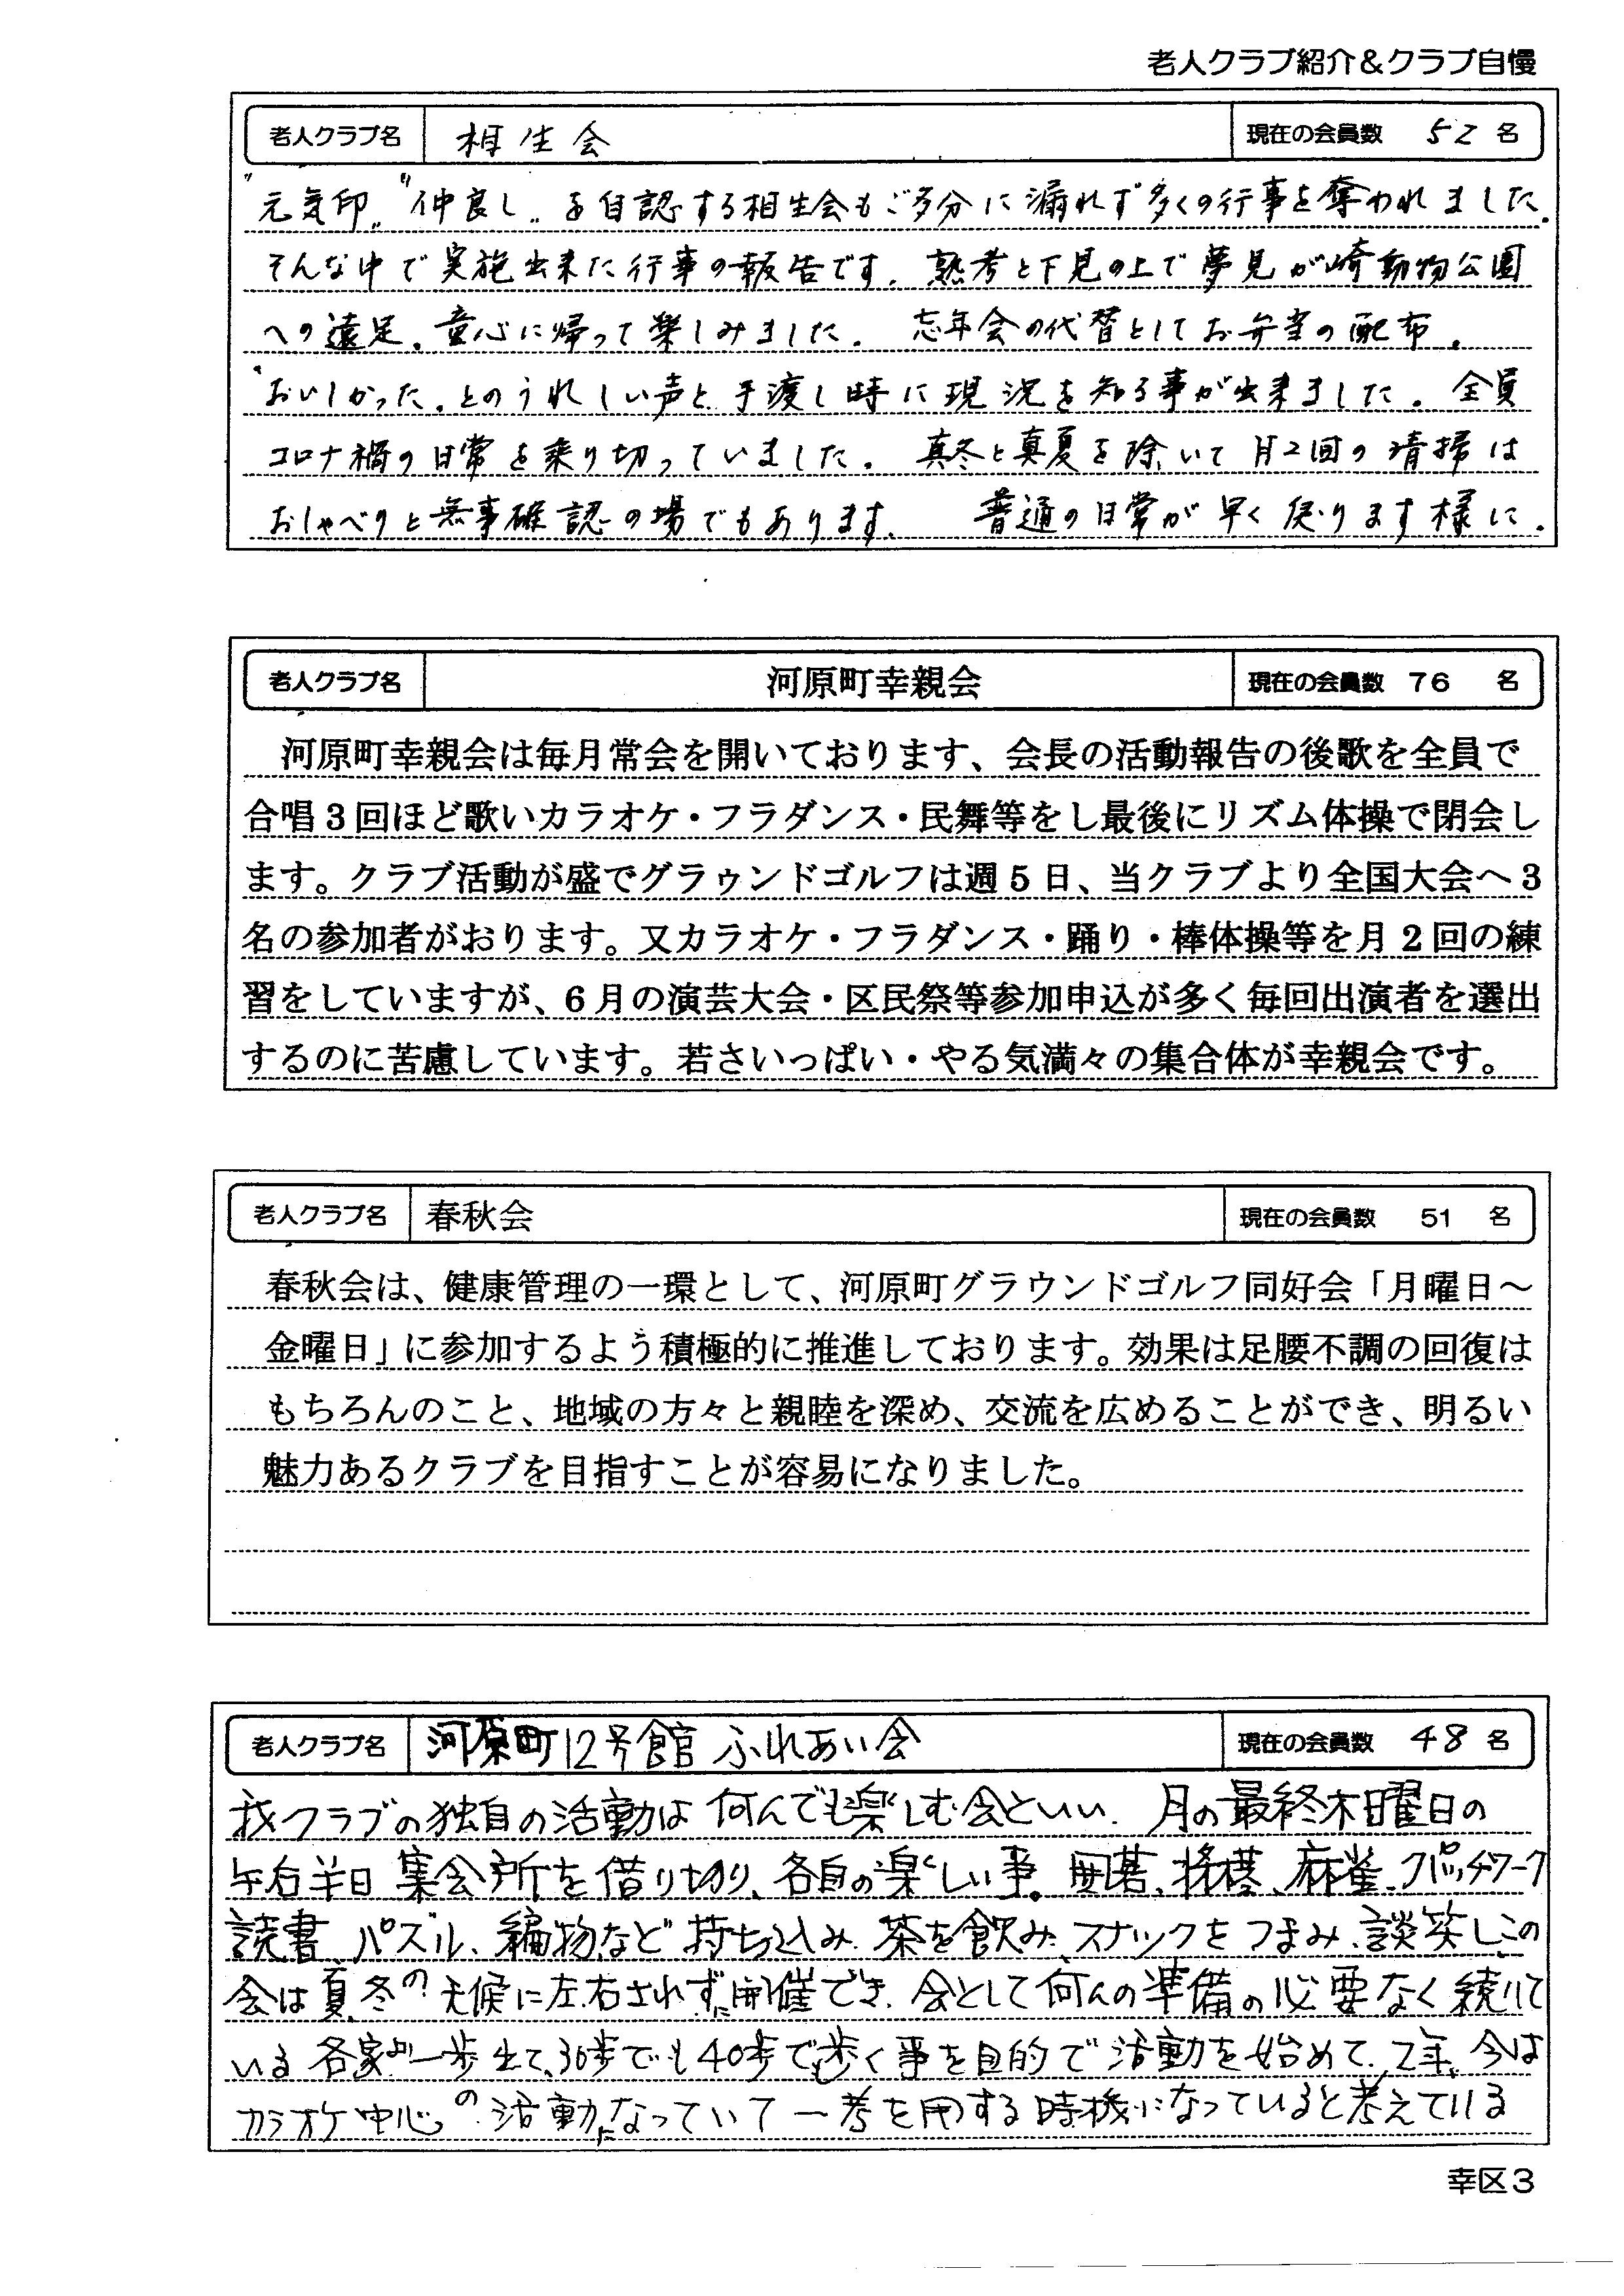 老人クラブ紹介&クラブ自慢
老人クラブ名 相生会 現在の会員数 52 名
"元気印" "仲良し" を自認する相生会もご多分に漏れず多くの行事を奪われました.
そんな中で実施出来た行事の報告です. 熟考と下見の上で夢見が崎動物公園
への遠足. 童心に帰って楽しみました. 忘年会の代替としてお弁当の配布.
"おいしかった" とのうれしい声と手渡し時に現況を知る事が出来ました. 全員
コロナ禍の日常を乗り切っていました. 真冬と真夏を除いて月2回の清掃は
おしゃべりと無事確認の場でもあります. 普通の日常が早く戻ります様に.
老人クラブ名 河原町幸親会 現在の会員数 76 名
河原町幸親会は毎月常会を開いております、会長の活動報告の後歌を全員で
合唱3回ほど歌いカラオケ・フラダンス・民舞等をし最後にリズム体操で閉会し
ます。クラブ活動が盛でグラゥンドゴルフは週5日、当クラブより全国大会へ3
名の参加者がおります。又カラオケ・フラダンス・踊り・棒体操等を月2回の練
習をしていますが、6月の演芸大会・区民祭等参加申込が多く毎回出演者を選出
するのに苦慮しています。若さいっぱい・やる気満々の集合体が幸親会です。
老人クラブ名 春秋会 現在の会員数 51 名
春秋会は、健康管理の一環として、河原町グラウンドゴルフ同好会「月曜日～
金曜日」に参加するよう積極的に推進しております。効果は足腰不調の回復は
もちろんのこと、地域の方々と親睦を深め、交流を広めることができ、明るい
魅力あるクラブを目指すことが容易になりました。
老人クラブ名 河原町12号館 ふれあい会 現在の会員数 48 名
我クラブの独自の活動は何んでも楽しむ会といい. 月の最終木曜日の
午后半日 集会所を借り切り、各自の楽しい事。囲碁、将棋、麻雀、パッチワーク
読書 パズル、編物など持ち込み、茶を飲み、スナックをつまみ、談笑し、この
会は夏、冬の天候に左右されずに開催でき、会として何んの準備の必要なく続いて
いる 各家より一歩出て、30歩でも40歩でも歩く事を目的で活動を始めて、2年、今は
カラオケ中心の活動になっていて一考を用する時機になっていると考えている
幸区3